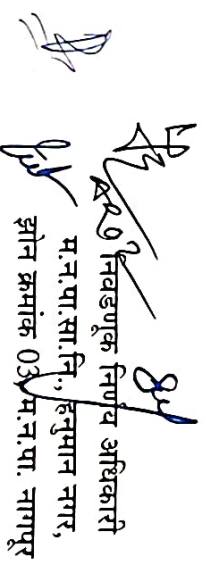 निवडणूक निर्णय अधिकारी
म.न.पा.सा.नि., हनुमान नगर,
झोन क्रमांक 03, म.न.पा. नागपूर